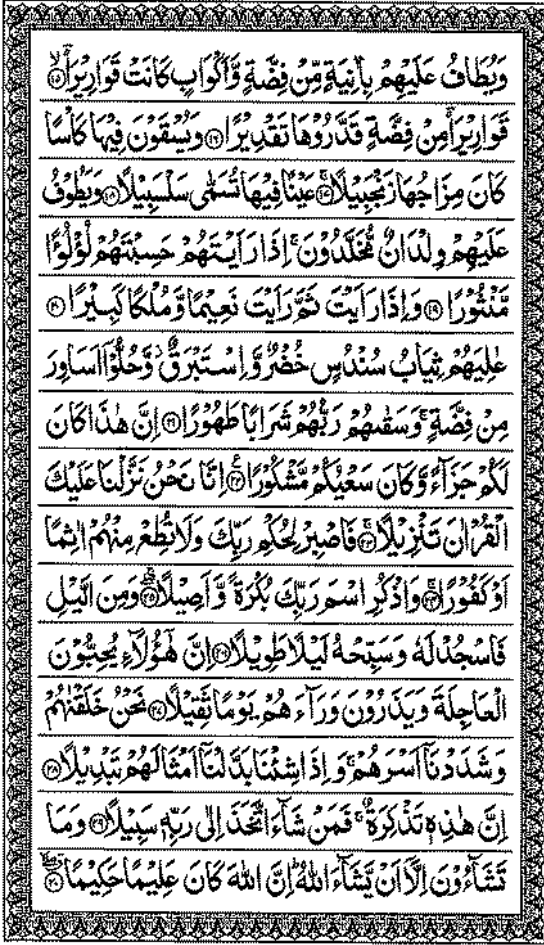 وَيُطَافُ عَلَيْهِمْ بِاٰنِيَةٍ مِّنْ فِضَّةٍ وَّاَكْوَابٍ كَانَتْ قَوَارِيْرَا۠ ۙ﴿۱۵﴾
قَوَارِيْرَا۟مِنْ فِضَّةٍ قَدَّرُوْهَا تَقْدِيْرًا ﴿۱۶﴾ وَيُسْقَوْنَ فِيْهَا كَاْسًا
كَانَ مِزَاجُهَا زَنْجَبِيْلًا ۚ﴿۱۷﴾ عَيْنًا فِيْهَا تُسَمّٰى سَلْسَبِيْلًا ﴿۱۸﴾ وَيَطُوْفُ
عَلَيْهِمْ وِلْدَانٌ مُّخَلَّدُوْنَ ۚ اِذَا رَاَيْتَهُمْ حَسِبْتَهُمْ لُؤْلُؤًا
مَّنْثُوْرًا ﴿۱۹﴾ وَاِذَا رَاَيْتَ ثَمَّ رَاَيْتَ نَعِيْمًا وَّمُلْكًا كَبِيْرًا ﴿۲۰﴾
عٰلِيَهُمْ ثِيَابُ سُنْدُسٍ خُضْرٌ وَّاِسْتَبْرَقٌ ۖ وَّحُلُّوْۤا اَسَاوِرَ
مِنْ فِضَّةٍ ۚ وَسَقٰىهُمْ رَبُّهُمْ شَرَابًا طَهُوْرًا ﴿۲۱﴾ اِنَّ هٰذَا كَانَ
لَكُمْ جَزَآءً وَّكَانَ سَعْيُكُمْ مَّشْكُوْرًا ﴿۲۲﴾ اِنَّا نَحْنُ نَزَّلْنَا عَلَيْكَ
الْقُرْاٰنَ تَنْزِيْلًا ۚ﴿۲۳﴾ فَاصْبِرْ لِحُكْمِ رَبِّكَ وَلَا تُطِعْ مِنْهُمْ اٰثِمًا
اَوْ كَفُوْرًا ۚ﴿۲۴﴾ وَاذْكُرِ اسْمَ رَبِّكَ بُكْرَةً وَّاَصِيْلًا ۖ﴿۲۵﴾ وَمِنَ الَّيْلِ
فَاسْجُدْ لَهٗ وَسَبِّحْهُ لَيْلًا طَوِيْلًا ﴿۲۶﴾ اِنَّ هٰٓؤُلَآءِ يُحِبُّوْنَ
الْعَاجِلَةَ وَيَذَرُوْنَ وَرَآءَ هُمْ يَوْمًا ثَقِيْلًا ﴿۲۷﴾ نَحْنُ خَلَقْنٰهُمْ
وَشَدَدْنَاۤ اَسْرَهُمْ ۚ وَاِذَا شِئْنَا بَدَّلْنَاۤ اَمْثَالَهُمْ تَبْدِيْلًا ﴿۲۸﴾
اِنَّ هٰذِهٖ تَذْكِرَةٌ ۚ فَمَنْ شَآءَ اتَّخَذَ اِلٰى رَبِّهٖ سَبِيْلًا ﴿۲۹﴾ وَمَا
تَشَآءُوْنَ اِلَّاۤ اَنْ يَّشَآءَ اللّٰهُ ؕ اِنَّ اللّٰهَ كَانَ عَلِيْمًا حَكِيْمًا ﴿۳۰﴾